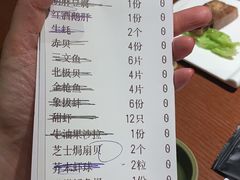 胡麻豆腐 1份 0
红酒鹅肝 1份 0
生蚝 2个 0
赤贝 4片 0
三文鱼 6片 0
北极贝 4片 0
金枪鱼 4片 0
象拔蚌 6份 0
甜虾 12只 0
牛油果沙拉 1份 0
芝士焗扇贝 2个 0
芥末虾球 2粒 0
1份 0